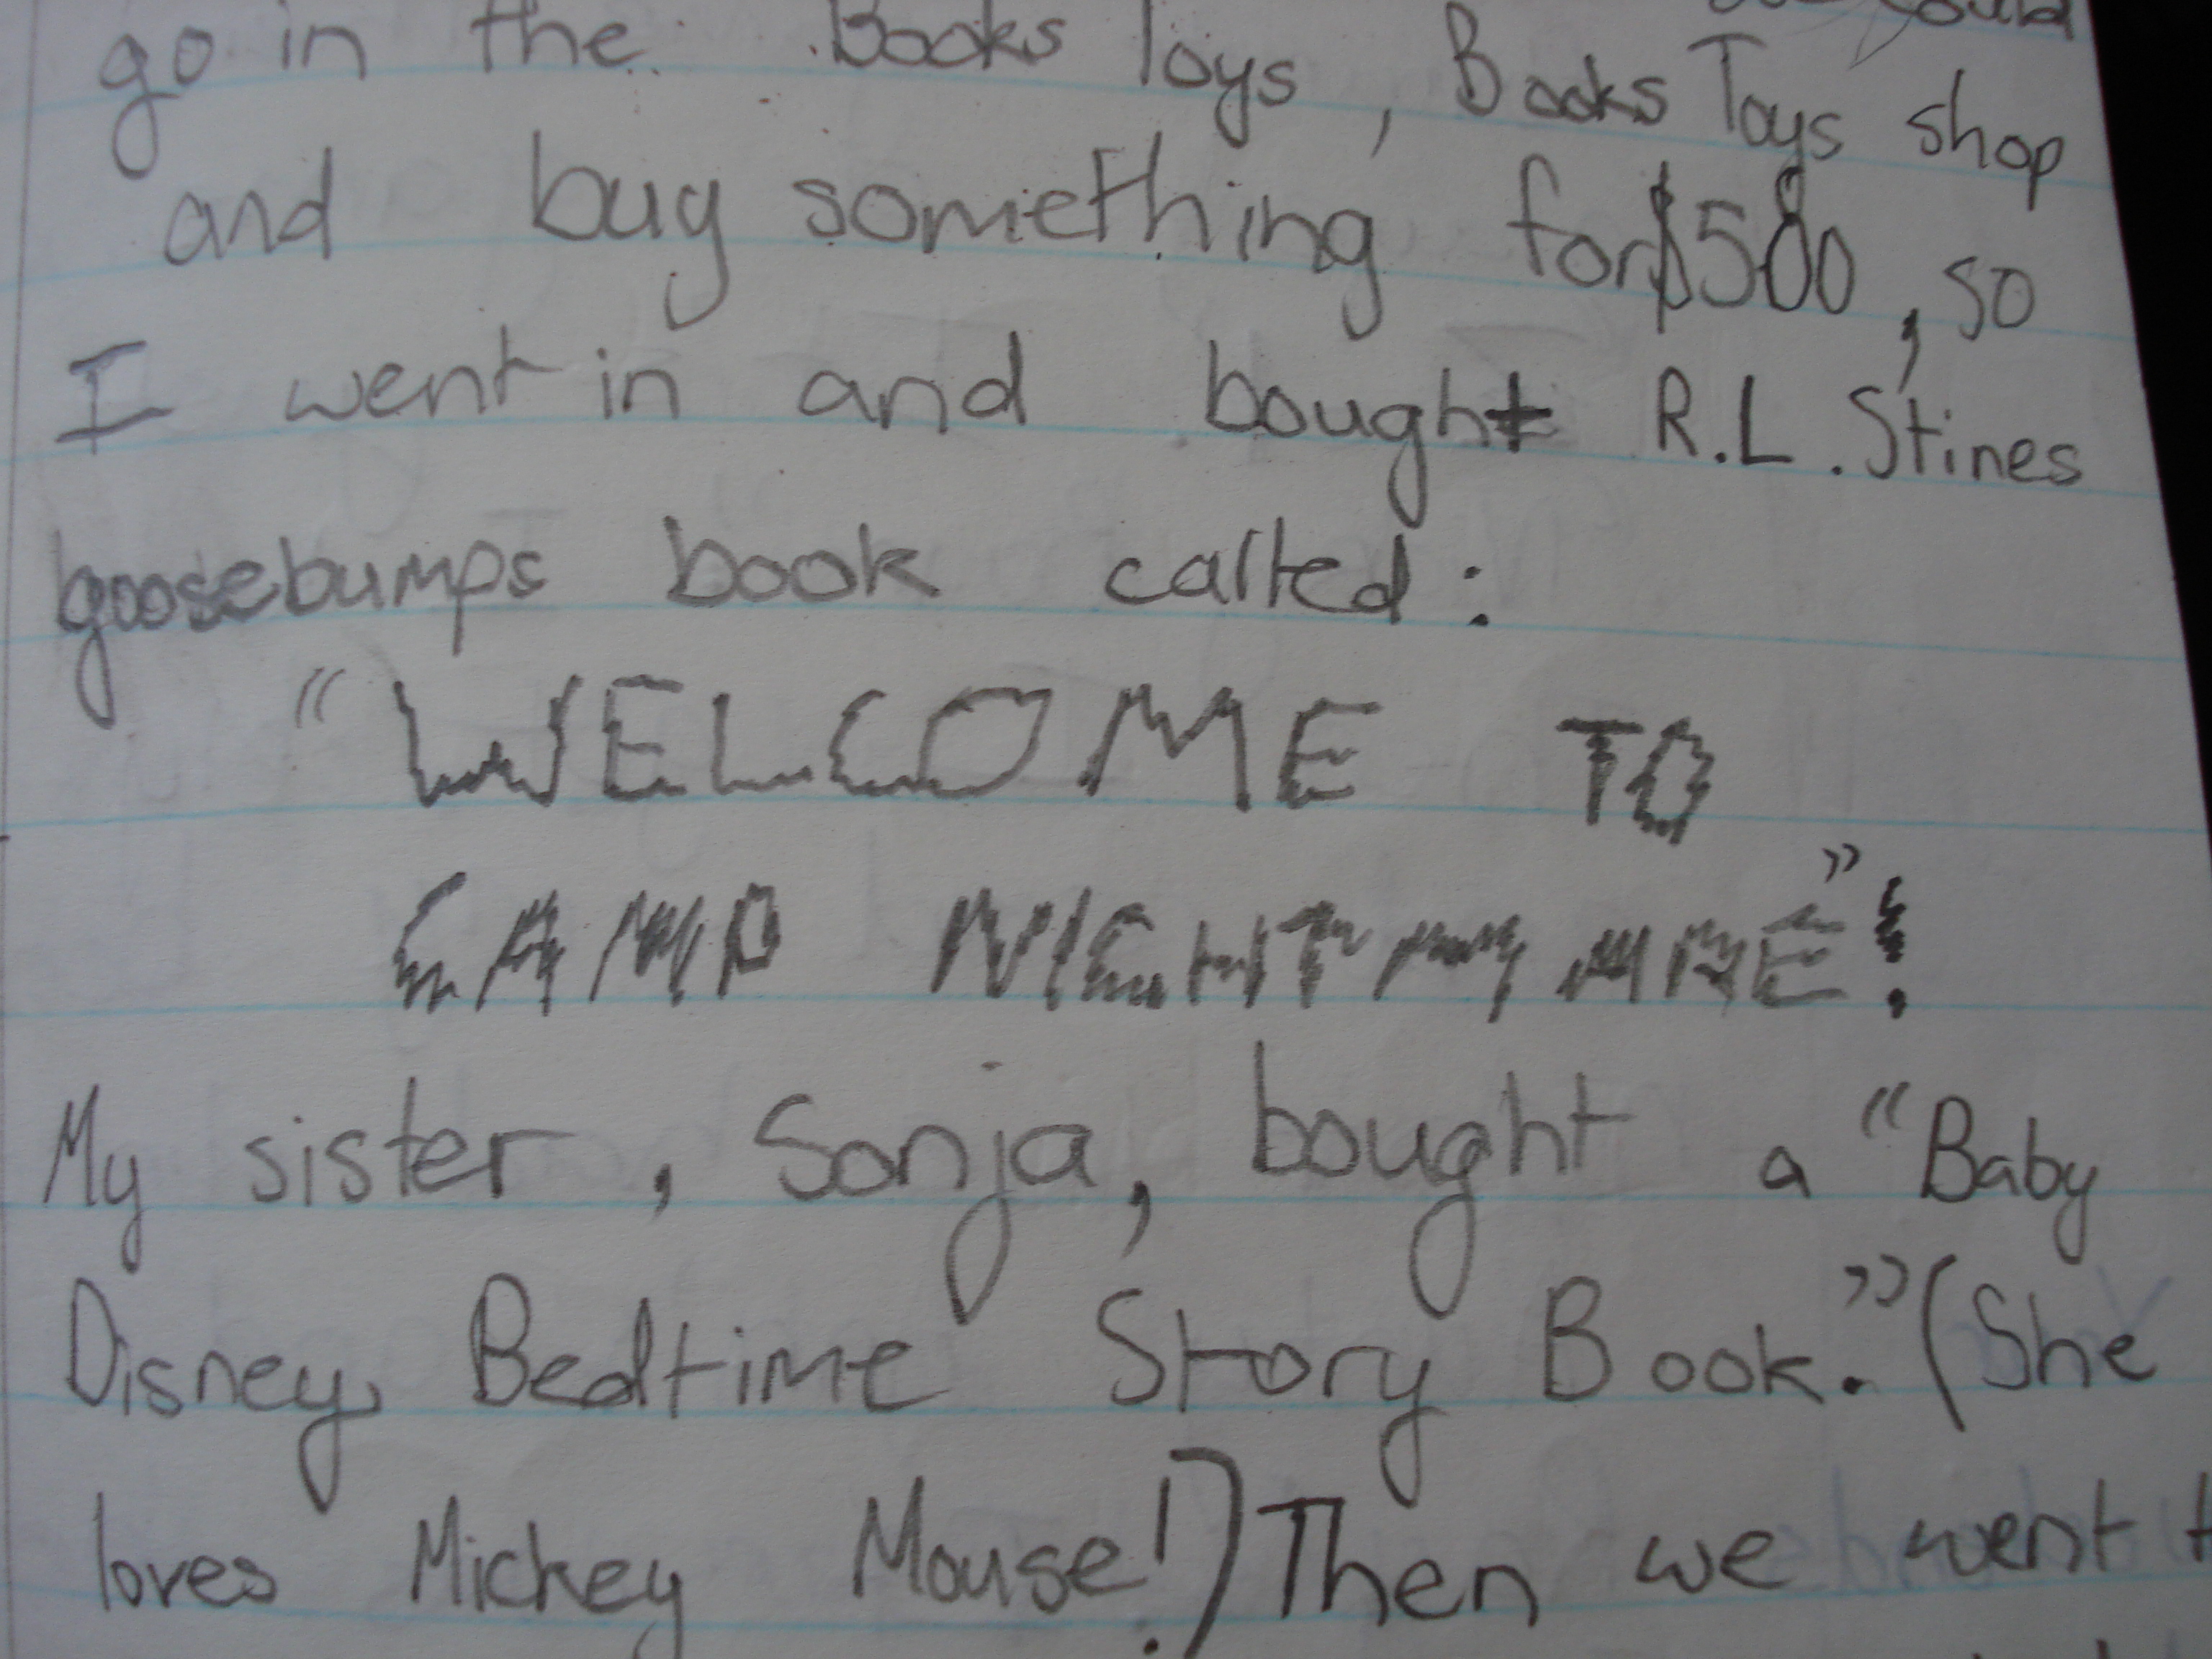 could
go in the Books Toys, Books Toys shop
and buy something for $500, so
I went in and bought R.L. Stines
goosebumps book called:
"WELCOME TO
CAMP NIGHTMARE"!
My sister, Sonja, bought a "Baby
Disney Bedtime Story Book." (She
loves Mickey Mouse!) Then we went